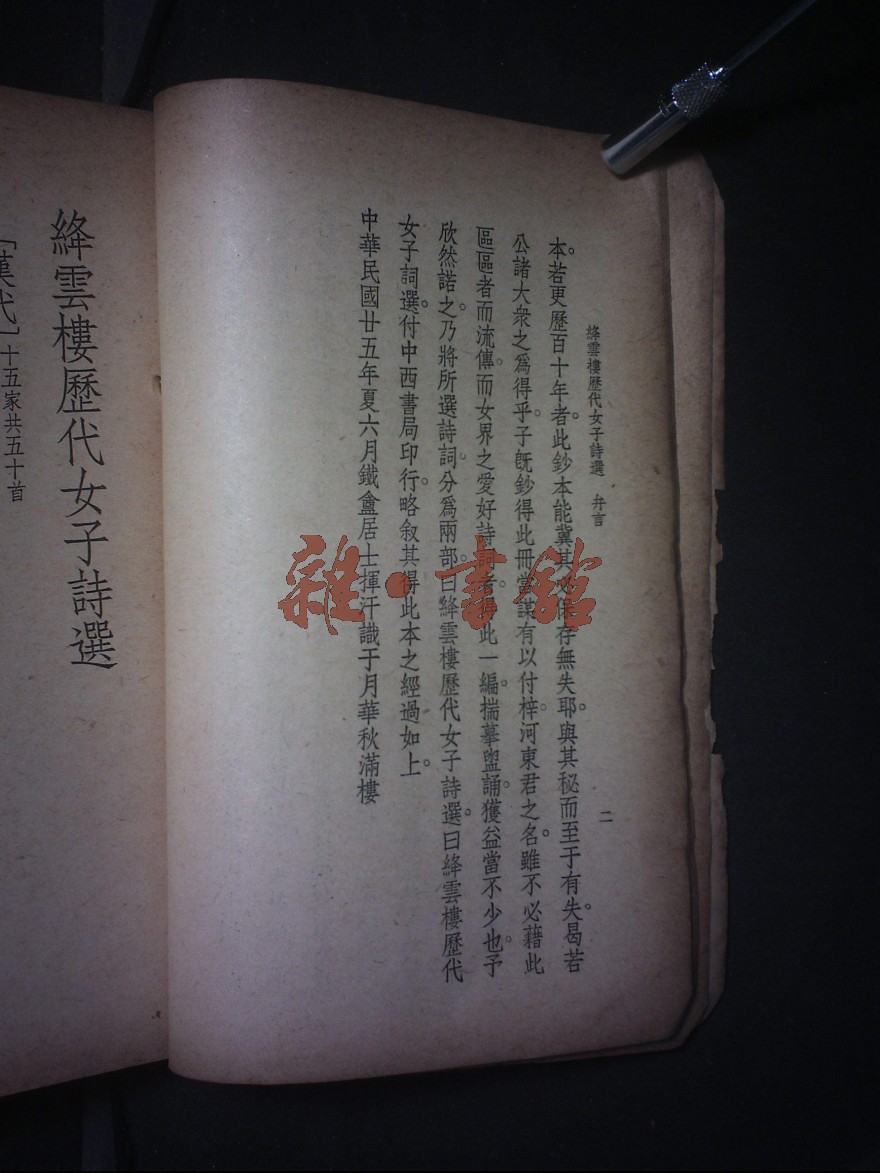 絳雲樓歷代女子詩選　弁言　二
本。若更歷百十年者。此鈔本能冀其必保存無失耶。與其秘而至于有失。曷若
公諸大衆之爲得乎。子既鈔得此冊。當謀有以付梓。河東君之名。雖不必藉此
區區者而流傳。而女界之愛好詩詞者。得此一編。揣摹盥誦。獲益當不少也。予
欣然諾之。乃將所選詩詞。分爲兩部。曰絳雲樓歷代女子詩選。曰絳雲樓歷代
女子詞選。付中西書局印行。略敘其得此本之經過如上。
中華民國廿五年夏六月鐵盦居士揮汗識于月華秋滿樓
絳雲樓歷代女子詩選
［漢代］十五家共五十首
雜·書館